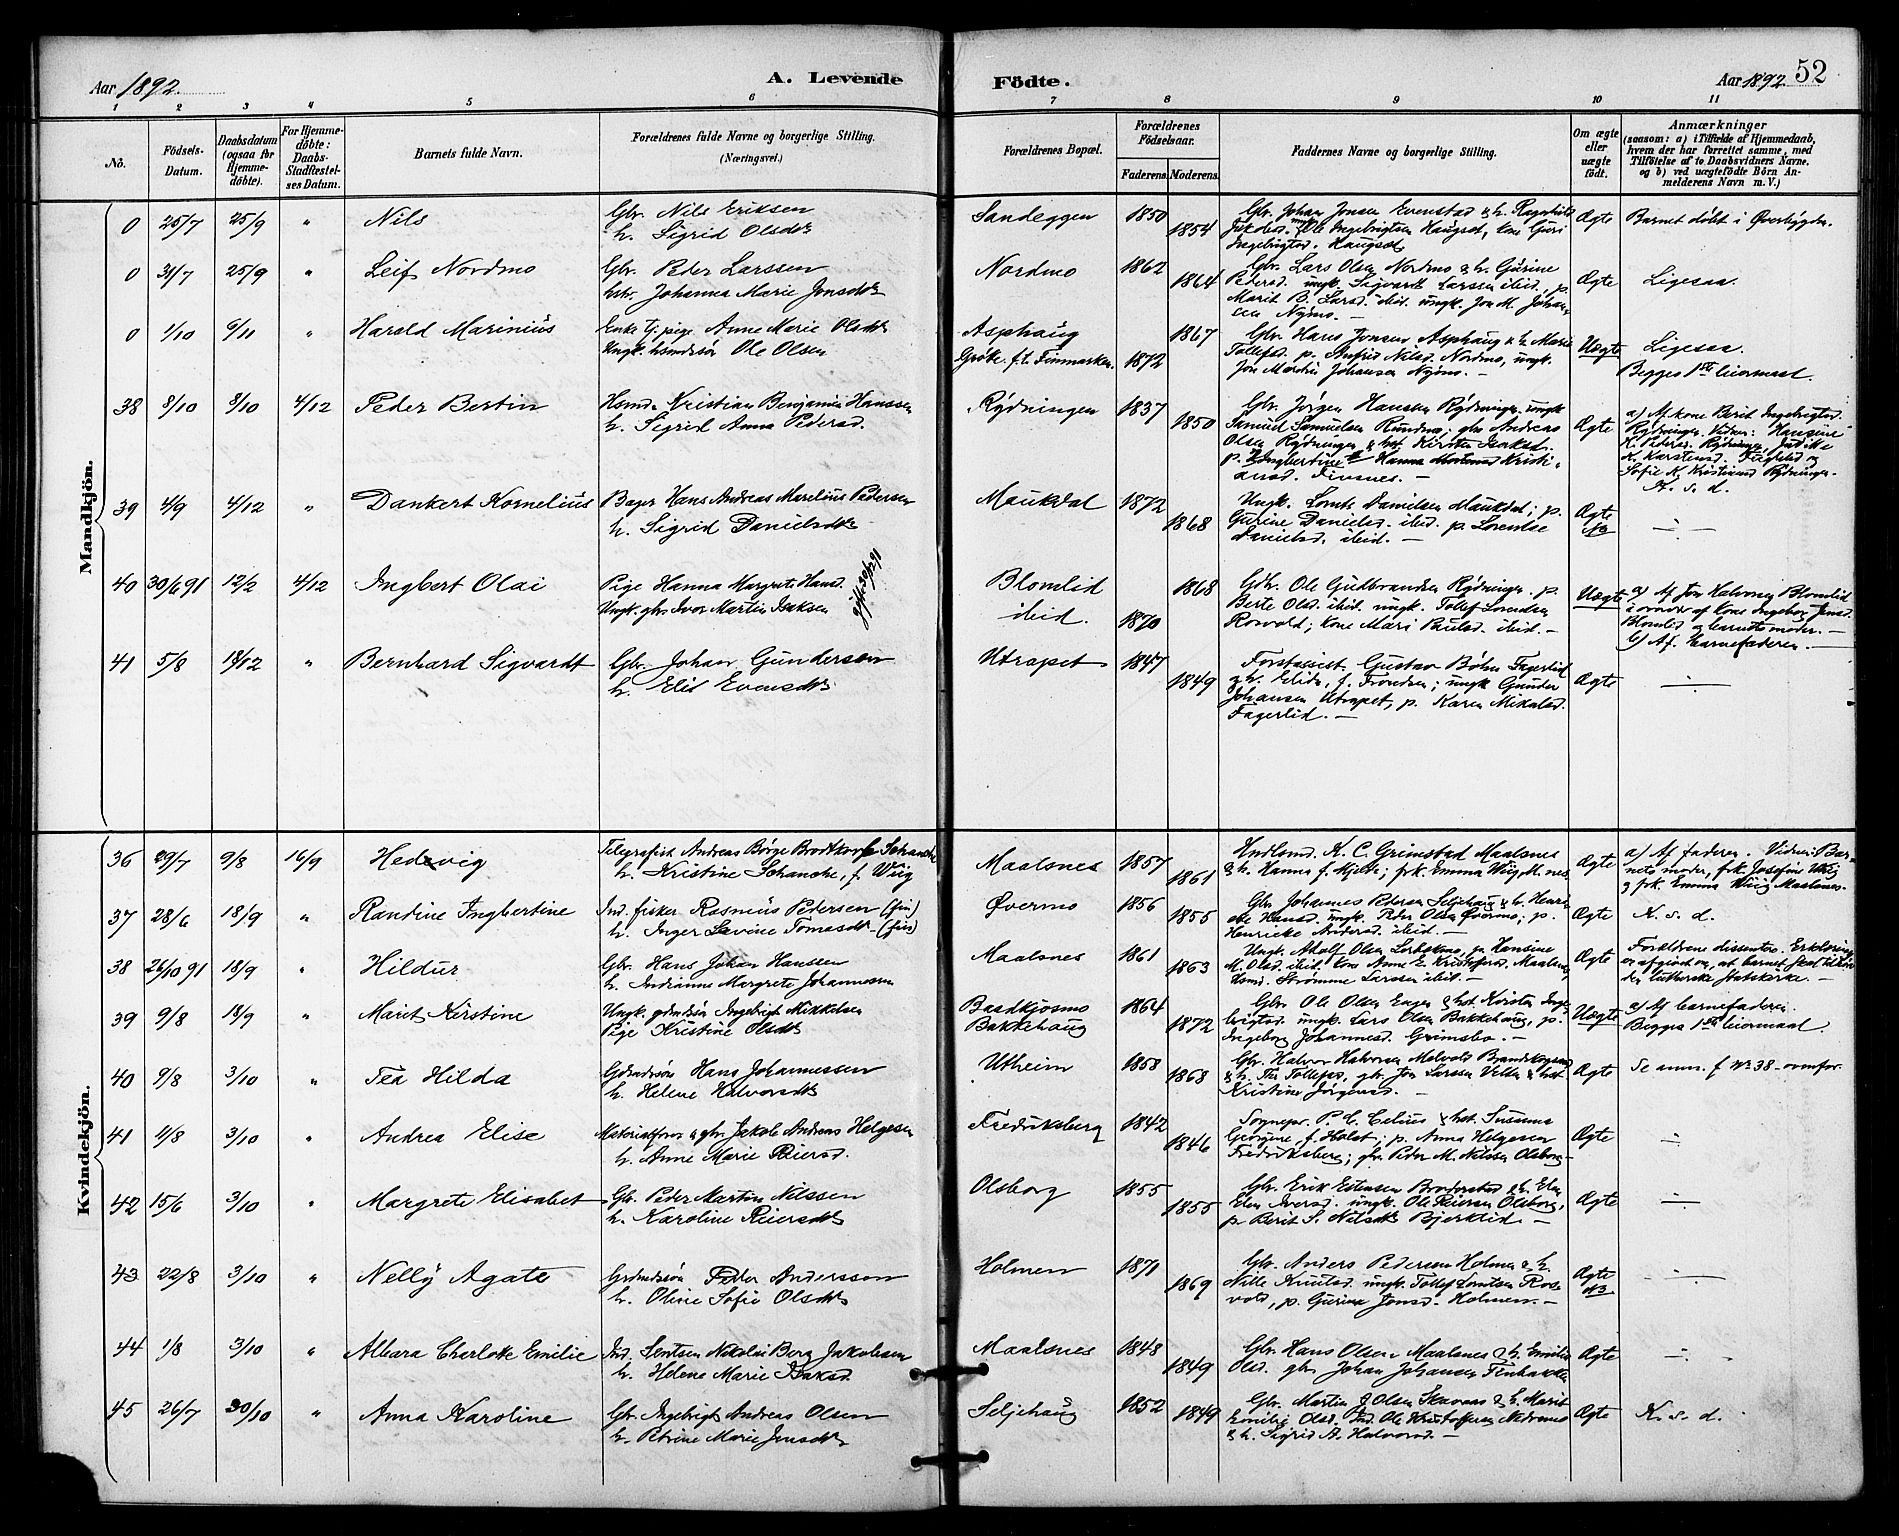 Aar 1892.
A. Levende
Födte.
Aar 1892.
52
1 2 3 4 5 6 7 8 9 10 11
No.
Födsels-
Datum.
Daabsdatum
(ogsaa for
Hjemme-
döbte).
For Hjemme-
döbte:
Daabs-
Stadfæstel-
ses Datum.
Barnets fulde Navn.
Forældrenes fulde Navne og borgerlige Stilling.
(Næringsvei.)
Forældrenes Bopæl.
Forældrenes
Födselsaar.
Faderens. Moderens.
Faddernes Navne og borgerlige Stilling.
Om ægte
eller
uægte
födt.
Anmærkninger
(saasom: a) i Tilfælde af Hjemmedaab,
hvem der har forrettet samme, med
Tilföielse af to Daabsvidners Navne,
og b) ved uægtefödte Börn An-
melderens Navn m. V.)
Mandkjön.
0 25/7 25/9 " Nils
Gbr. Nils Eriksen
h. Sigrid Olsdtr
Sandeggen 1850 1854
Gbr. Johan Jonsen Evenstad & h. Ragnhild
Jakobsd. ungk. Ole Ingebrigtsen Haugset, kone Guri
Ingebrigtsd. Haugset
Ægte
Barnet döbt i Øverbygden.
0 31/7 25/9 " Leif Nordmo
Gbr. Peder Larssen
hstr. Johanna Marie Jonsdtr
Nordmo 1862 1864
Gbr. Lars Olsen Nordmo & h. Gurine
Pedersd. ungk. Sigvart Larssen ibid, p.
Marit B. Larsd. ibid. ungk. Jon M. Johan-
sen Nymo. —
Ægte
Ligesaa.
0 1/10 6/11 " Harald Marinius
Enke tj. pige Anne Marie Olsdtr
Ungk. husmdssön Ole Olsen
Asphaug 1867
f.t. Finmarken. 1872
Gbr. Hans Jonsen Asphaug & h. Marie
Tollefsd. p. Anfrid Nilsd. Nordmo, ungk.
Jon Martin Johansen Nymo. —
Uægte
Ligesaa.
Begges 1ste leiermaal.
38 8/10 8/10 4/12 Peder Bertin
Hsmd. Kristian Benjamin Hanssen
h. Sigrid Anna Pedersd.
Rydningen 1837 1850
Gbr. Jörgen Hansen Rydningen. ungk
Samuel Samuelsen Rundmo; gbr Andreas
Olsen Rydningen & hst Kirsten Isaksd.
p. Ingbertine Hanna Kristi-
ansd. Finsnes. —
Ægte
a) Af kone Berit Ingebrigtsd.
Rydningen. Vidner: Hansine
K. Pedersd. Rydningen Judithe
K. Karstensd. Fagerlid og
Sofie K. Kristiansd Rydningen.
K. s. d.
39 4/9 4/12 " Dankert Kornelius
Bager Hans Andreas Marelius Pedersen
h. Sigrid Danielsdtr
Maukdal 1872 1868
Ungk. Lorents Danielsen Maukdal; p.
Gurine Danielsd. ibid. p. Lorentse
Danielsd. ibid. —
Ægte
N3
÷
40 30/6 91 12/2 4/12 Ingbert Olai
Pige Hanna Margrete Hansd.
Ungk. gbr Ivar Martin Isaksen
gift 30/12 91
Blomlid 1868
ibid. 1870
Gdb. Ole Gudbrandsen Rydningen. p.
Berte Olsd. ibid. ungk. Tollef Lorentsen
Rosvold; kone Mari Paulsd. ibid. —
Uægte
a) Af Jon Halvorsen Blomlid
i nærvær af kone Ingeborg Jensd.
Blomlid og barnets moder. —
b) Af barnefaderen. —
41 5/8 18/12 " Bernhard Sigvardt
Gbr. Johan Gundersen
h. Elit Evensdtr
Utrapet 1847 1849
Forstassist. Gustav Böhn Fagerlid
& h. Elida, f. Trondsen; ungk Gunder
Johansen Utrapet, p. Karen Mikalsd.
Fagerlid. —
Ægte
÷
Kvindekjön.
36 29/7 9/8 16/9 Hedevig
Telegrafist Andreas Börge Brodtkorb Schanche
h. Kristine Schanche, f. Wiig
Maalsnes 1857 1861
Hndlsmd. K. C. Grimstad Maalsnes
& h. Hanna f. Hjelde; frk. Emma Wiig, M.nes.
Ægte
a) Af faderen. Vidner: Bar-
nets moder, frk. Josefine Wiig
og frk. Emma Wiig Maalsnes.
37 28/6 18/9 " Randine Ingbertine
Ind. fisker Rasmus Petersen (fin)
h. Inger Lavine Tomasdtr (fin)
Øvermo 1856 1855
Gbr. Johannes Pedersen Seljehaug & h. Henri-
ette Hansd. ungk. Peder Olsen Øvermo; p.
Henrikke Andersd. ibid. —
Ægte
K. s. d.
38 26/10 91 18/9 " Hildur
Gbr. Hans Johan Hanssen
h. Indianna Margrete Johannessen
Maalsnes 1861 1863
Ungk. Adolf Olsen p. Hansine
M. Olsd. ibid. kone Anne E. Kristofersd. Maalsnes
Hsmd. Strömme Larssen ibid. —
Ægte
Forældrene dissentere. Erklæring
er afgivet om, at barnet skal tilhöre
den lutherske statskirke. —
39 9/8 18/9 " Marit Kirstine
Ungk. gdmdssön Ingebrigt Mikkelsen
Pige Kristine Olsdtr
Baadkjosmo 1864
Bakkehaug 1872
Gbr. Ole Olsen Enger & hst. Kirsten Inge-
brigtsd. ungk. Lars Olsen Bakkehaug, p.
Ingeborg Johannesd. Grimsbo. —
Uægte
a) Af barnefaderen.
Begges 1ste leiermaal.
40 9/8 3/10 " Tea Hilda
Gdmdssön Hans Johannessen
h. Helene Halvorsdtr
Utheim 1858 1868
Gbr. Halvor Halvorsen Brandskognes
& h. Thea Tollefsd, gbr. Jon Larssen & hst.
Kristine Jörgensd. —
Ægte
Se anm. f No 38 ovenfor.
41 4/8 3/10 " Andrea Elise
Materialforv. & gbr. Jakob Andreas Helgesen
h. Anne Marie Reiersd.
Fredriksberg 1842 1846
Sognepr. P. C. Celius & hst. Susanna
Georgine f. Holst; p. Anna Helgesen
Fredriksberg; gbr. Peder M. Nilssen Olsborg —
Ægte
÷
42 15/6 3/10 " Margrete Elisabet
Gbr. Peder Martin Nilssen
h. Karoline Reiersdtr
Olsborg 1855 1855
Gbr. Erik Estensen Brodersstad & h. Elen
Elen Iversd. ungk. Ole Reiersen Olsborg,
p. Berit S. Nilsdtr Bjerklid. —
Ægte
÷
43 22/8 3/10 " Nelly Agate
Grdmdssön Peder Anderssen
h. Oline Sofie Olsdtr
Holmen 1871 1869
Gbr. Anders Pedersen Holmen & h.
Nille Knutsd. ungk. Tollef Lorntsen Ros-
vold, p. Gurine Jonsd. Holmen. —
Ægte
N3
÷
44 1/8 3/10 " Albara Charlotte Emilie
Ind. Sentsen Nikolai Berg Jakobsen
h. Helene Marie Isaksd.
Maalsnes 1848 1849
Gbr. Hans Olsen Maalsnes & h. Emilie
Olsd. gbr Johan Johansen Finbakken
Ægte
÷
45 26/7 30/10 " Anna Karoline
Gbr. Ingebrigt Andreas Olsen
h. Petrine Marie Jensdtr
Seljehaug 1852 1849
Gbr. Martin J. Olsen & h. Marit
Emilie Olsd. Ind. Ole Kristoffersen Nedremo
& h. Sigrid A. Halvorsd. —
Ægte
K. s. d.